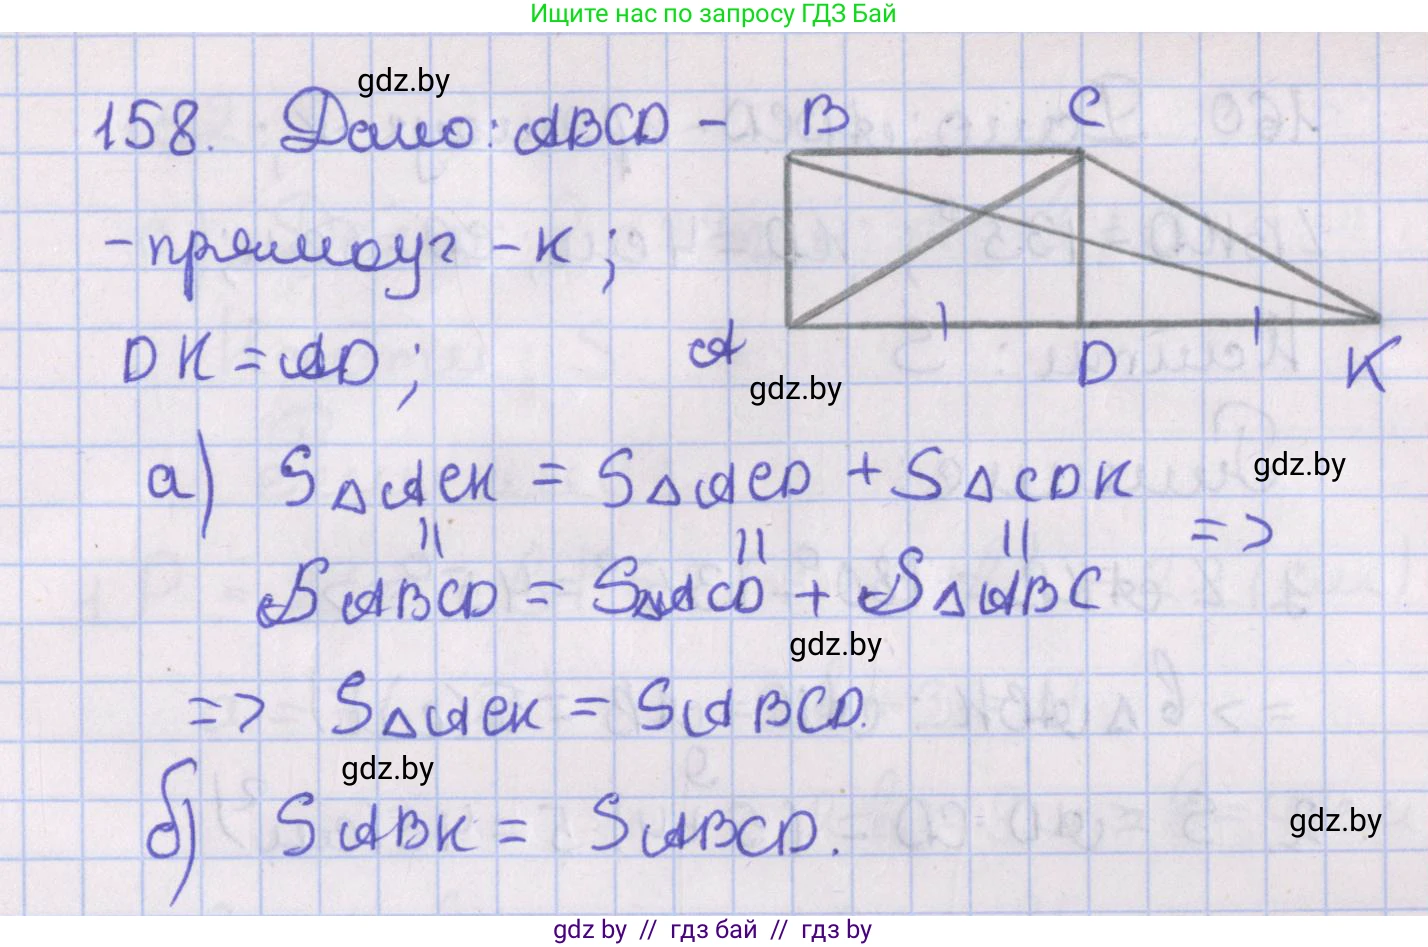 Ищите нас по запросу ГДЗ Бай
gdz.by
158. Дано: ABCD -
B C
- прямоуг - к;
DK = AD;
A D K
gdz.by
а) S△ACK = S△ACD + S△CDK
gdz.by
|| || || =>
SABCD = S△ACD + S△ABC
gdz.by
=> S△ACK = SABCD.
gdz.by
б) SABK = SABCD.
gdz.by
gdz.by // гдз бай // гдз by